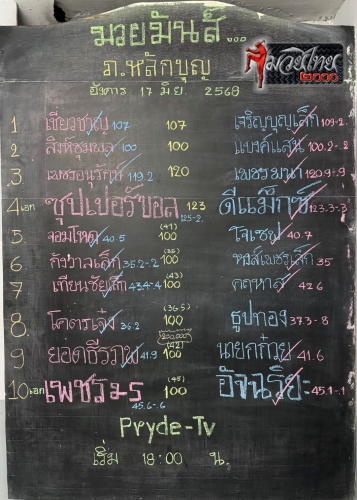 มวยมันส์...
ภ.หลักบุญ
มวยไทย
2000
อังคาร 17 มิ.ย. 2568
1 เชี่ยวชาญ 107 107 เจริญบุญเล็ก 109-2
2 สิงห์ชุมพล 100 100 แบงค์แสน 100.2-.2
3. เพชรอนุรักษ์ 119.2 120 เพชร 120.9-.9
4 เอก ซุปเปอร์บอล 125-2. 123 ดีแม็กซ์ 123.3-3
5 จอมโหด 40.5 (41) 100 โจเซฟ 40.7
6 กังวาลเล็ก 35.2-.2 (35) 100 หงส์เพชรเล็ก 35
7 เทียนชัยเล็ก 43.4-4 (43) 100 คฤหาส 42.6
8. โคตรเจ๋ง 36.2 (36.5) 100 ธูปทอง 37.3-8
(200,000)
9 ยอดธีรภพ 41.9 (42) 100 นายกก้วย 41.6
10 เอก เพชรัมร 45.6-.6 (45) 100 อัจฉริยะ 45.1-.1
Pryde-Tv
เริ่ม 18:00 น.